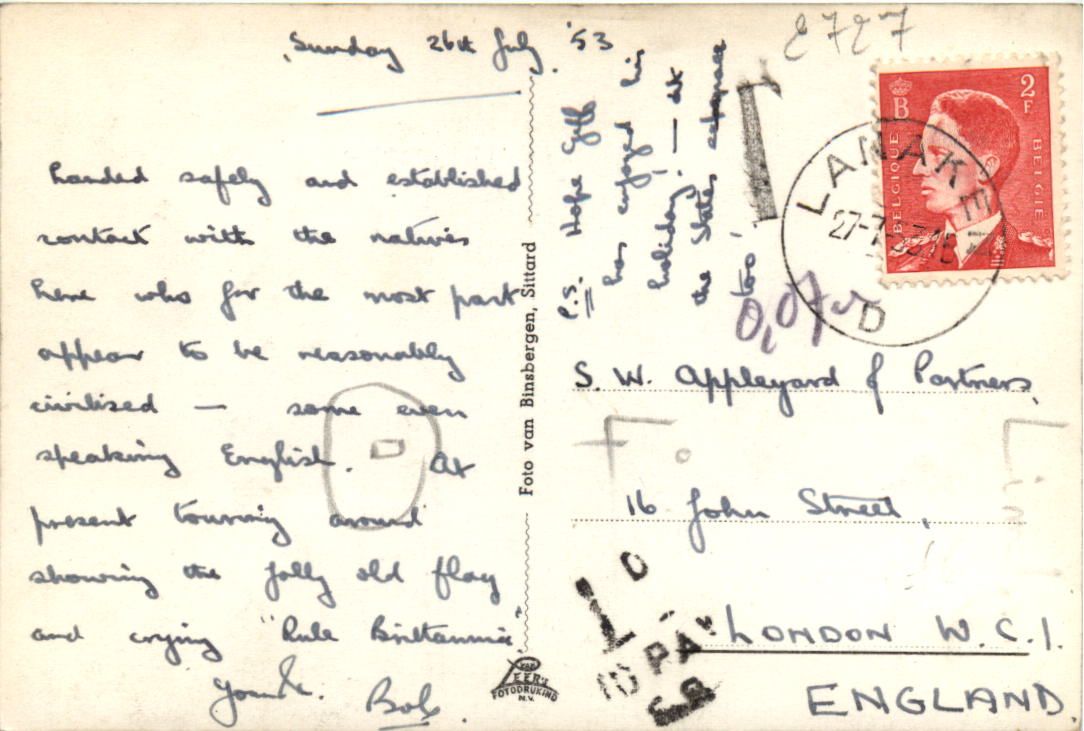 Sunday 26th July '53
Landed safely and established
contact with the natives
here who for the most part
appear to be reasonably
civilised — some even
speaking English. At
present touring around
showing the jolly old flag
and crying "Rule Britannia"
Yours.
Bob.
P.S. Hope Geff
has enjoyed his
holiday! — at
the States
too!
Foto van Binsbergen, Sittard
VAN LEER'S
FOTODRUKIND
N.V.
2727
2F
B
BELGIQUE
BELGIE
LANAKEN
27-7
15
D
0,07
T
S. W. Appleyard & Partners,
16 John Street,
LONDON W.C.1.
ENGLAND.
1D
TO PAY